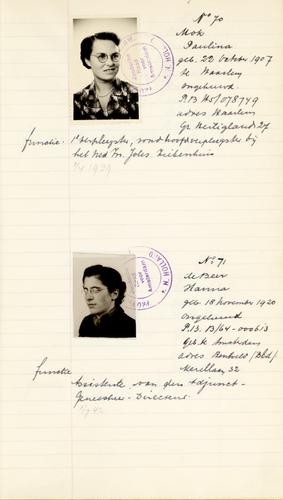 No 70
Mok
Paulina
geb. 22 October 1907
te Haarlem
ongehuwd
P.B. H5/078749
adres Haarlem
Gr. Heiligland 27
functie: 1e verpleegster, wnd hoofdverpleegster bij
het Ned. Isr. Ziekenhuis
No 71
de Beer
Hanna
geb. 18 November 1920
ongehuwd
P.B. B/64-000613
Geb. te Amsterdam
adres
Merellaan 32
functie
Assistente van den Adjunct-
Geneesheer-Directeur